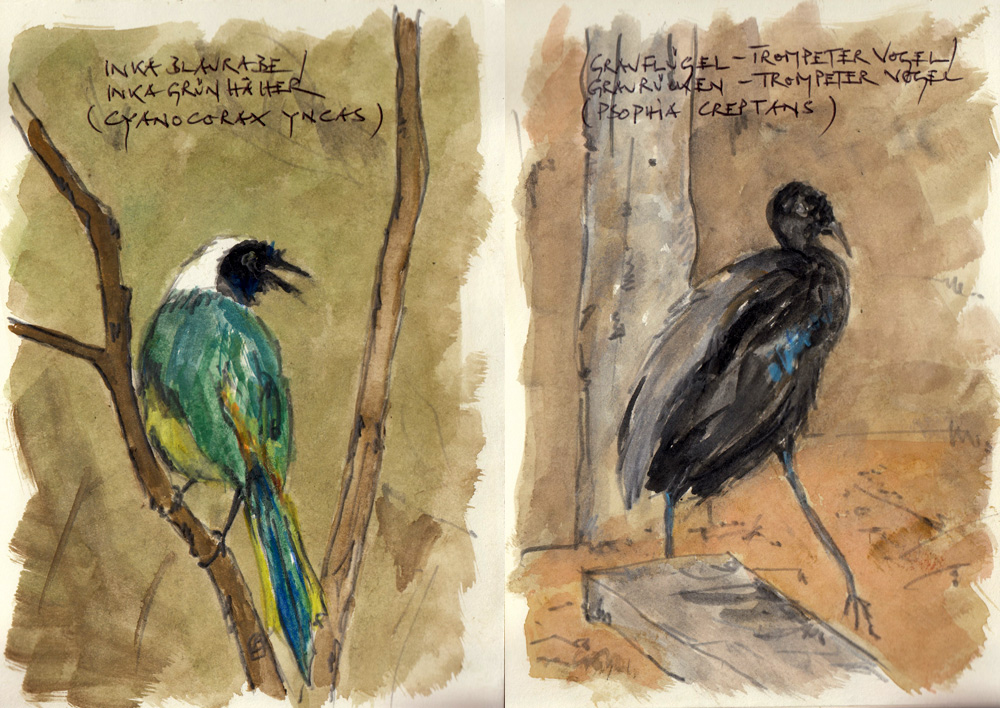 INKA BLAURABE/
INKA GRÜNHÄHER
(CYANOCORAX YNCAS)
GRAUFLÜGEL-TROMPETER VOGEL/
GRAURÜCKEN -TROMPETER VOGEL
(PSOPHIA CREPTANS)